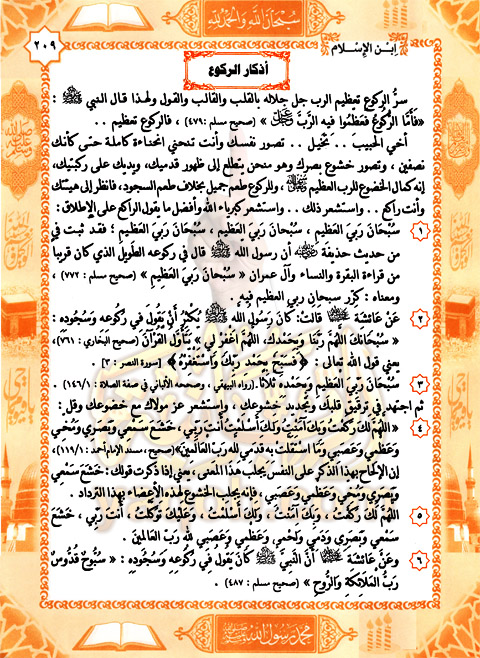 سبحان الله والحمد لله
٢٠٩
ابن الإسلام
أذكار الركوع
سرُّ الركوع تعظيم الرب جل جلاله بالقلب والقالب والقول ولهذا قال النبي ﷺ :
« فَأَمَّا الرُّكُوعُ فَعَظِّمُوا فِيهِ الرَّبَّ ﷻ » (صحيح مسلم : ٤٧٩) ، فالركوع تعظيم ..
أخي الحبيب .. تخيل .. تصور نفسك وأنت تنحني انحناءة كاملة حتى كأنك
نصفين ، وتصور خشوع بصرك وهو منحنٍ يتطلع إلى ظهور قدميك، ويديك على ركبتيك،
إنه كمال الخضوع للرب العظيم ، وللركوع طعم جميل بخلاف طعم السجود، فانظر إلى هيئتك
وأنت راكع .. واستشعر ذلك .. واستشعر كبرياء الله وأفضل ما يقول الراكع على الإطلاق:
١ سُبْحَانَ رَبِيَ العَظِيمِ ، سُبْحَانَ رَبِيَ العَظِيمِ ، سُبْحَانَ رَبِيَ العَظِيمِ ؛ فقد ثبت في
من حديث حذيفة أن رسول الله ﷺ قال في ركوعه الطويل الذي كان قريبا
من قراءة البقرة والنساء وآل عمران « سُبْحَانَ رَبِيَ العَظِيمِ » (صحيح مسلم : ٧٧٢) ،
ومعناه : كرِّر سبحان ربي العظيم فيه .
٢ عَنْ عَائِشَةَ قالت: كَانَ رَسُولُ اللهِ ﷺ يُكْثِرُ أَنْ يَقُولَ فِي رُكُوعِهِ وَسُجُودِهِ :
« سُبْحَانَكَ اللَّهُمَّ رَبَّنَا وَبِحَمْدِكَ، اللَّهُمَّ اغْفِرْ لِي » يَتَأَوَّلُ القُرْآنَ (صحيح البخاري : ٧٦١)،
يعني قول الله تعالى : ﴿ فَسَبِّحْ بِحَمْدِ رَبِّكَ وَاسْتَغْفِرْهُ ﴾ [سورة النصر : ٣]
٣ سُبْحَانَ رَبِّيَ العَظِيمِ وَبِحَمْدِهِ ثَلَاثًا . (رواه البيهقي ، وصححه الألباني في صفة الصلاة : ١٤٦/١)
ثم اجتهد في ترقيق قلبك وتجديد خشوعك ، واستشعر عز مولاك مع خضوعك وقل :
٤ «اللَّهُمَّ لَكَ رَكَعْتُ وَبِكَ آمَنْتُ وَلَكَ أَسْلَمْتُ أَنْتَ رَبِّي ، خَشَعَ سَمْعِي وَبَصَرِي وَمُخِّي
وَعَظْمِي وَعَصَبِي وَمَا اسْتَقَلَّتْ بِهِ قَدَمِي لِلهِ رَبِّ العَالَمِينَ» (صحيح، مسند الإمام أحمد : ١١٩/١)،
إن الإلحاح بهذا الذكر على النفس يجلب هذا المعنى ، يعني إذا ذكرت قولك : خَشَعَ سَمْعِي
وَبَصَرِي وَمُخِّي وَعَظْمِي وَعَصَبِي ، فإنه يجلب الخشوع لهذه الأعضاء بهذا الترداد .
٥ اللَّهُمَّ لَكَ رَكَعْتُ ، وَبِكَ آمَنْتُ ، وَلَكَ أَسْلَمْتُ ، وَعَلَيْكَ تَوَكَّلْتُ ، أَنْتَ رَبِّي ، خَشَعَ
سَمْعِي وَبَصَرِي وَدَمِي وَلَحْمِي، وَعَظْمِي وَعَصَبِي لِلهِ رَبِّ العَالَمِينَ .
٦ وعَنْ عَائِشَةَ أَنَّ النَّبِيَّ ﷺ كَانَ يَقُولُ فِي رُكُوعِهِ وَسُجُودِهِ : « سُبُّوحٌ قُدُّوسٌ
رَبُّ المَلَائِكَةِ وَالرُّوحِ » (صحيح مسلم : ٤٨٧) .
محمد رسول الله